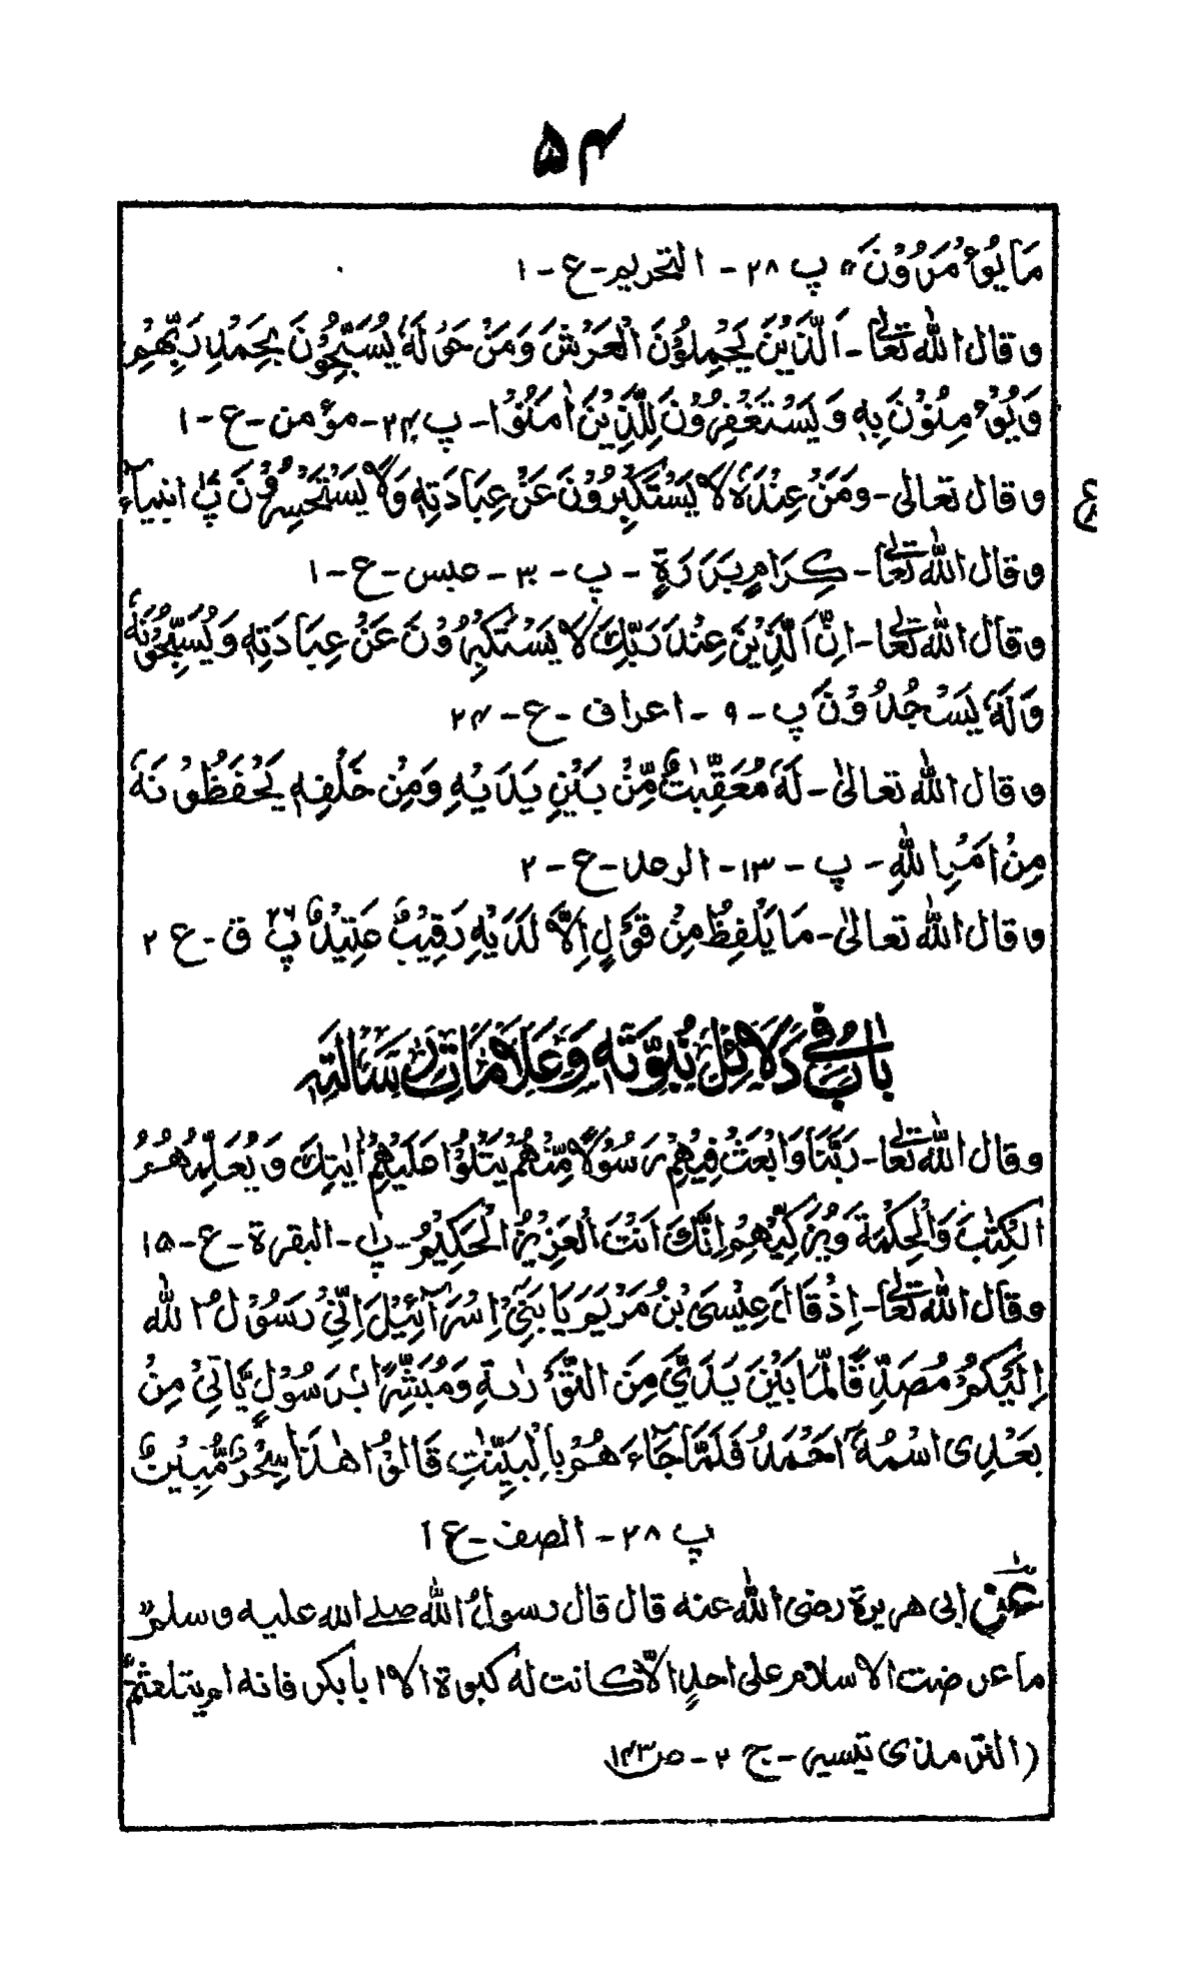 ۵۴
مَا يُؤْمَرُوْنَ ۝ پ ۲۸ - التحریم - ع - ۱
وقال اللہ تعالیٰ - اَلَّذِيْنَ يَحْمِلُوْنَ الْعَرْشَ وَمَنْ حَوْلَهٗ يُسَبِّحُوْنَ بِحَمْدِ رَبِّهِمْ
وَيُؤْمِنُوْنَ بِهٖ وَيَسْتَغْفِرُوْنَ لِلَّذِيْنَ اٰمَنُوْا - پ ۲۴ - مؤمن - ع - ۱
وقال تعالى - وَمَنْ عِنْدَهٗ لَا يَسْتَكْبِرُوْنَ عَنْ عِبَادَتِهٖ وَلَا يَسْتَحْسِرُوْنَ پ انبیاء
ع
وقال اللہ تعالیٰ - كِرَامٍ بَرَرَةٍ - پ - ۳۰ - عبس - ع - ۱
وقال اللہ تعالیٰ - اِنَّ الَّذِيْنَ عِنْدَ رَبِّكَ لَا يَسْتَكْبِرُوْنَ عَنْ عِبَادَتِهٖ وَيُسَبِّحُوْنَهٗ
وَلَهٗ يَسْجُدُوْنَ پ - ۹ - اعراف - ع - ۲۴
وقال الله تعالىٰ - لَهٗ مُعَقِّبٰتٌ مِّنْ بَيْنِ يَدَيْهِ وَمِنْ خَلْفِهٖ يَحْفَظُوْنَهٗ
مِنْ اَمْرِ اللهِ - پ - ۱۳ - الرعد - ع - ۲
وقال الله تعالىٰ - مَا يَلْفِظُ مِنْ قَوْلٍ اِلَّا لَدَيْهِ رَقِيْبٌ عَتِيْدٌ پ ۲۶ ق - ع ۲
بَابٌ فِيْ دَلَائِلِ نُبُوَّتِهٖ وَعَلَامَاتِ رِسَالَتِهٖ
وقال الله تعالیٰ - رَبَّنَا وَابْعَثْ فِيْهِمْ رَسُوْلًا مِّنْهُمْ يَتْلُوْا عَلَيْهِمْ اٰيٰتِكَ وَيُعَلِّمُهُمُ
الْكِتٰبَ وَالْحِكْمَةَ وَيُزَكِّيْهِمْ اِنَّكَ اَنْتَ الْعَزِيْزُ الْحَكِيْمُ - پ ۱ - البقرة - ع - ۱۵
وقال الله تعالیٰ - اِذْ قَالَ عِيْسَى بْنُ مَرْيَمَ يَا بَنِيْ اِسْرَآئِيْلَ اِنِّيْ رَسُوْلُ الله
اِلَيْكُمْ مُصَدِّقًا لِّمَا بَيْنَ يَدَيَّ مِنَ التَّوْرٰىةِ وَمُبَشِّرًا بِرَسُوْلٍ يَّاْتِيْ مِنْ
بَعْدِى اسْمُهٗ اَحْمَدُ فَلَمَّا جَآءَهُمْ بِالْبَيِّنٰتِ قَالُوْا هٰذَا سِحْرٌ مُّبِيْنٌ
پ ۲۸ - الصف - ع ۱
عَنْ ابى هريرة رضى الله عنه قال قال رسولُ الله صلے الله عليه وسلم
ما عرضت الاسلام على احدٍ الّا كانت له كبوة الا ابا بكر فانه لم يتلعثم
(الترمذى تيسير - ج ۲ - ص ۱۴۳